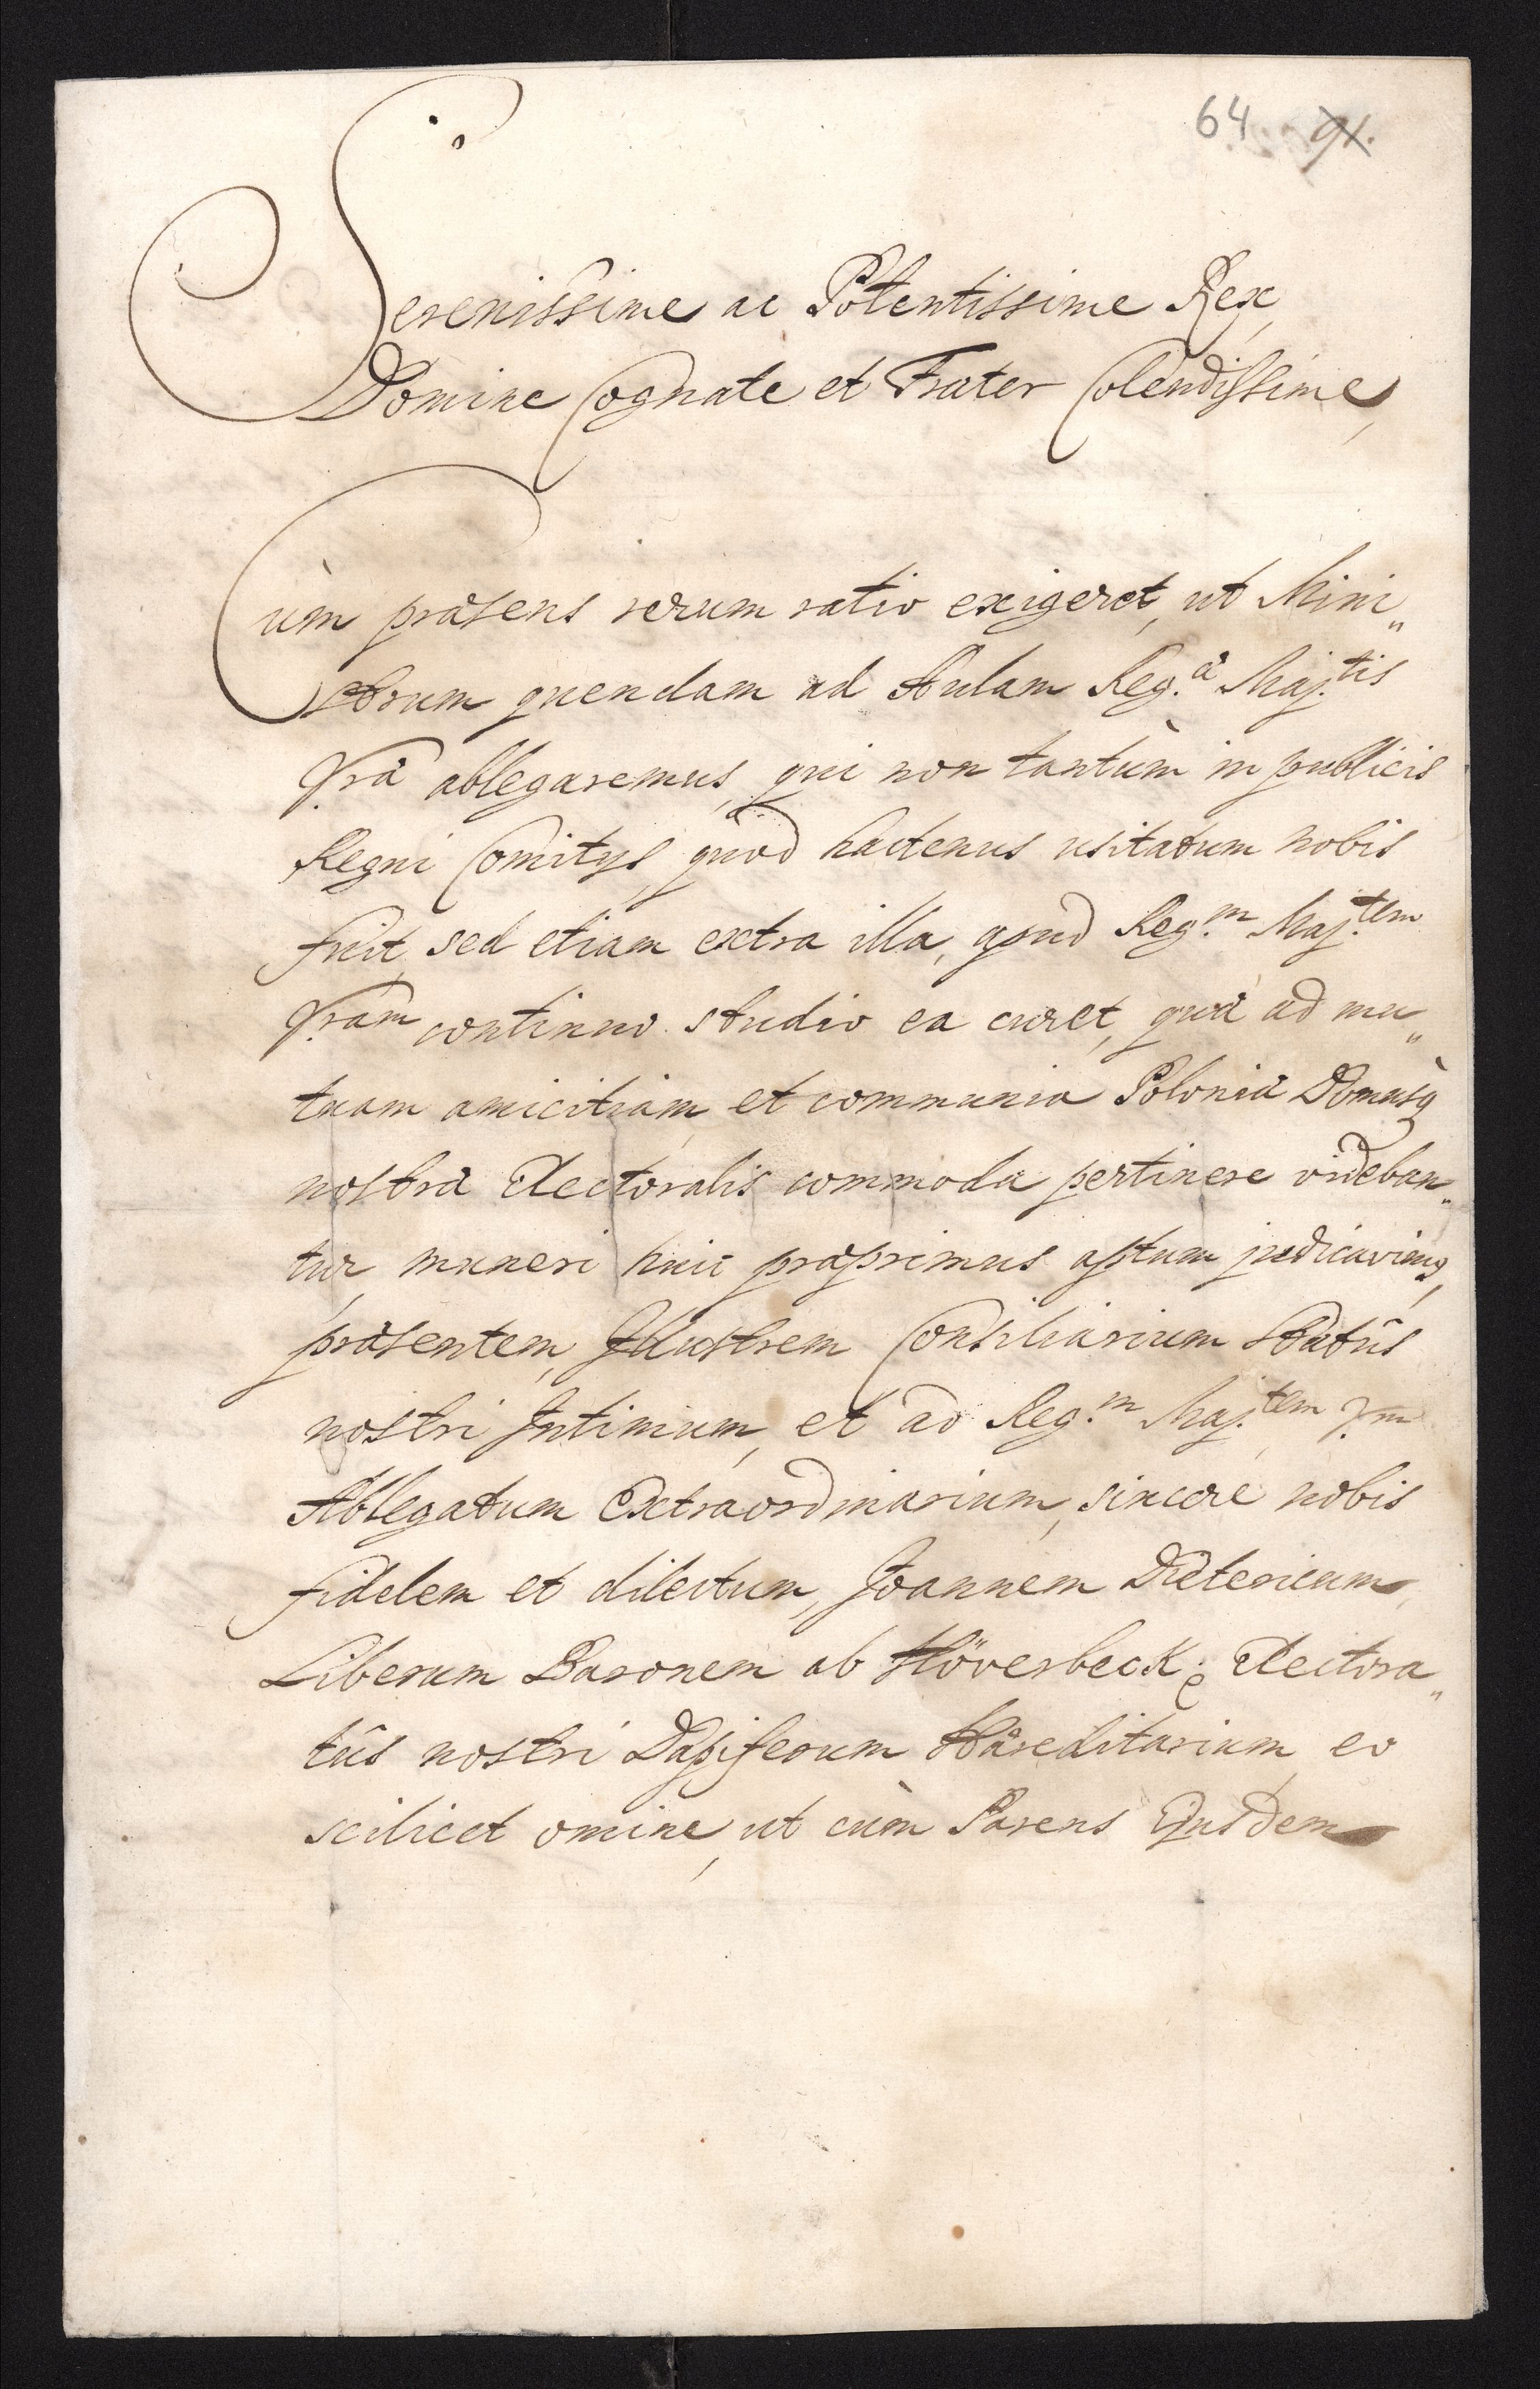 64. 91.
Serenissime ac Potentissime Rex,
Domine Cognate et Frater Colendissime,
Cùm præsens rerum ratio exigeret, ut Mini„
strum quendam ad Aulam Reg.æ Maj.tis
Vræ ablegaremus, qui non tantùm in publicis
Regni Comitijs, quod hactenus usitatum nobis
fuit, sed etiam extra illa, apud Reg.m Maj.tem
Vram continuo studio ea curet, quæ ad mu„
tuam amicitiam, et communia Poloniæ Domusq
nostræ Electoralis commoda pertinere videban„
tur, muneri huic præprimus aptum judicavimus,
præsentem, Illustrem Consiliarium Statûs
nostri Intimum, et ad Reg.m Maj.tem V.m
Ablegatum Extraordinarium, sincerè nobis
fidelem et dilectum, Joannem Dietericum
Liberum Baronem ab Höverbeck; Electora„
tûs nostri Dapiferum Hæreditarium, eo
scilicet omine, ut cùm Parens Ejusdem